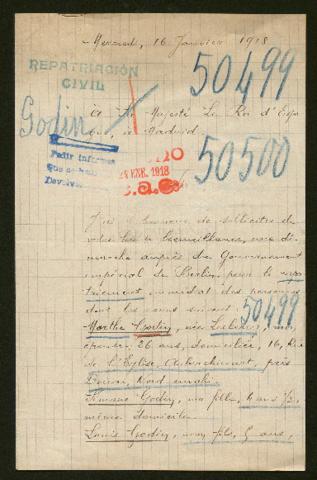 Mercredi, 16 Janvier 1918
REPATRIACIÓN
CIVIL
50499
Godin
A Sa Majesté Le Roi d'Espa
à Madrid.
Pedir informes
Devolver
24 ENE. 1918
50500
J'ai l'honneur de solliciter de
votre haute bienveillance, une dé-
marche auprès du Gouvernement
impérial de Berlin pour le rapa
triement immédiat des personnes
dont les noms suivent:
50499
Marthe Godin, née
26 ans, domiciliée, 16, Rue
de l'Eglise, près
Douai, Nord
Godin, ma fille, 4 ans 1/2,
même domicile
Louis Godin, mon fils, ans,